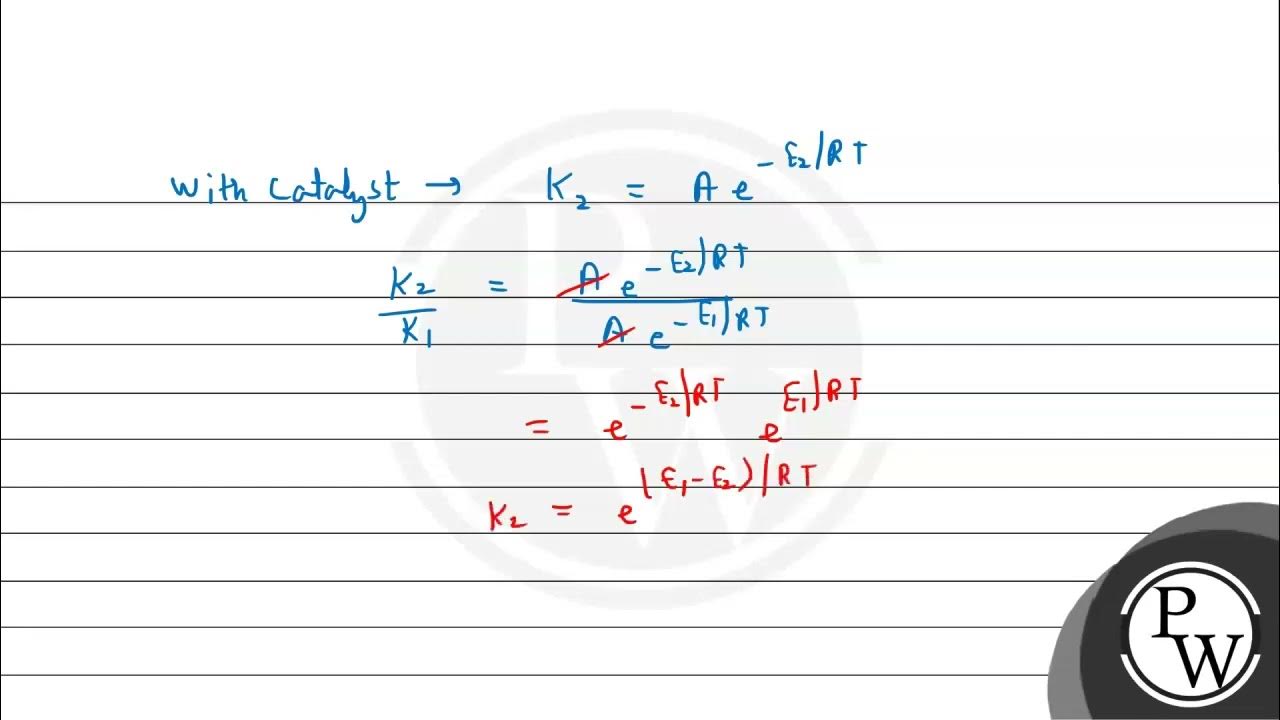 with catalyst → K₂ = A e^{-E₂/RT}
K₂/K₁ = A e^{-E₂/RT} / A e^{-E₁/RT}
= e^{-E₂/RT} e^{E₁/RT}
K₂ = e^{(E₁-E₂)/RT}
PW
PW